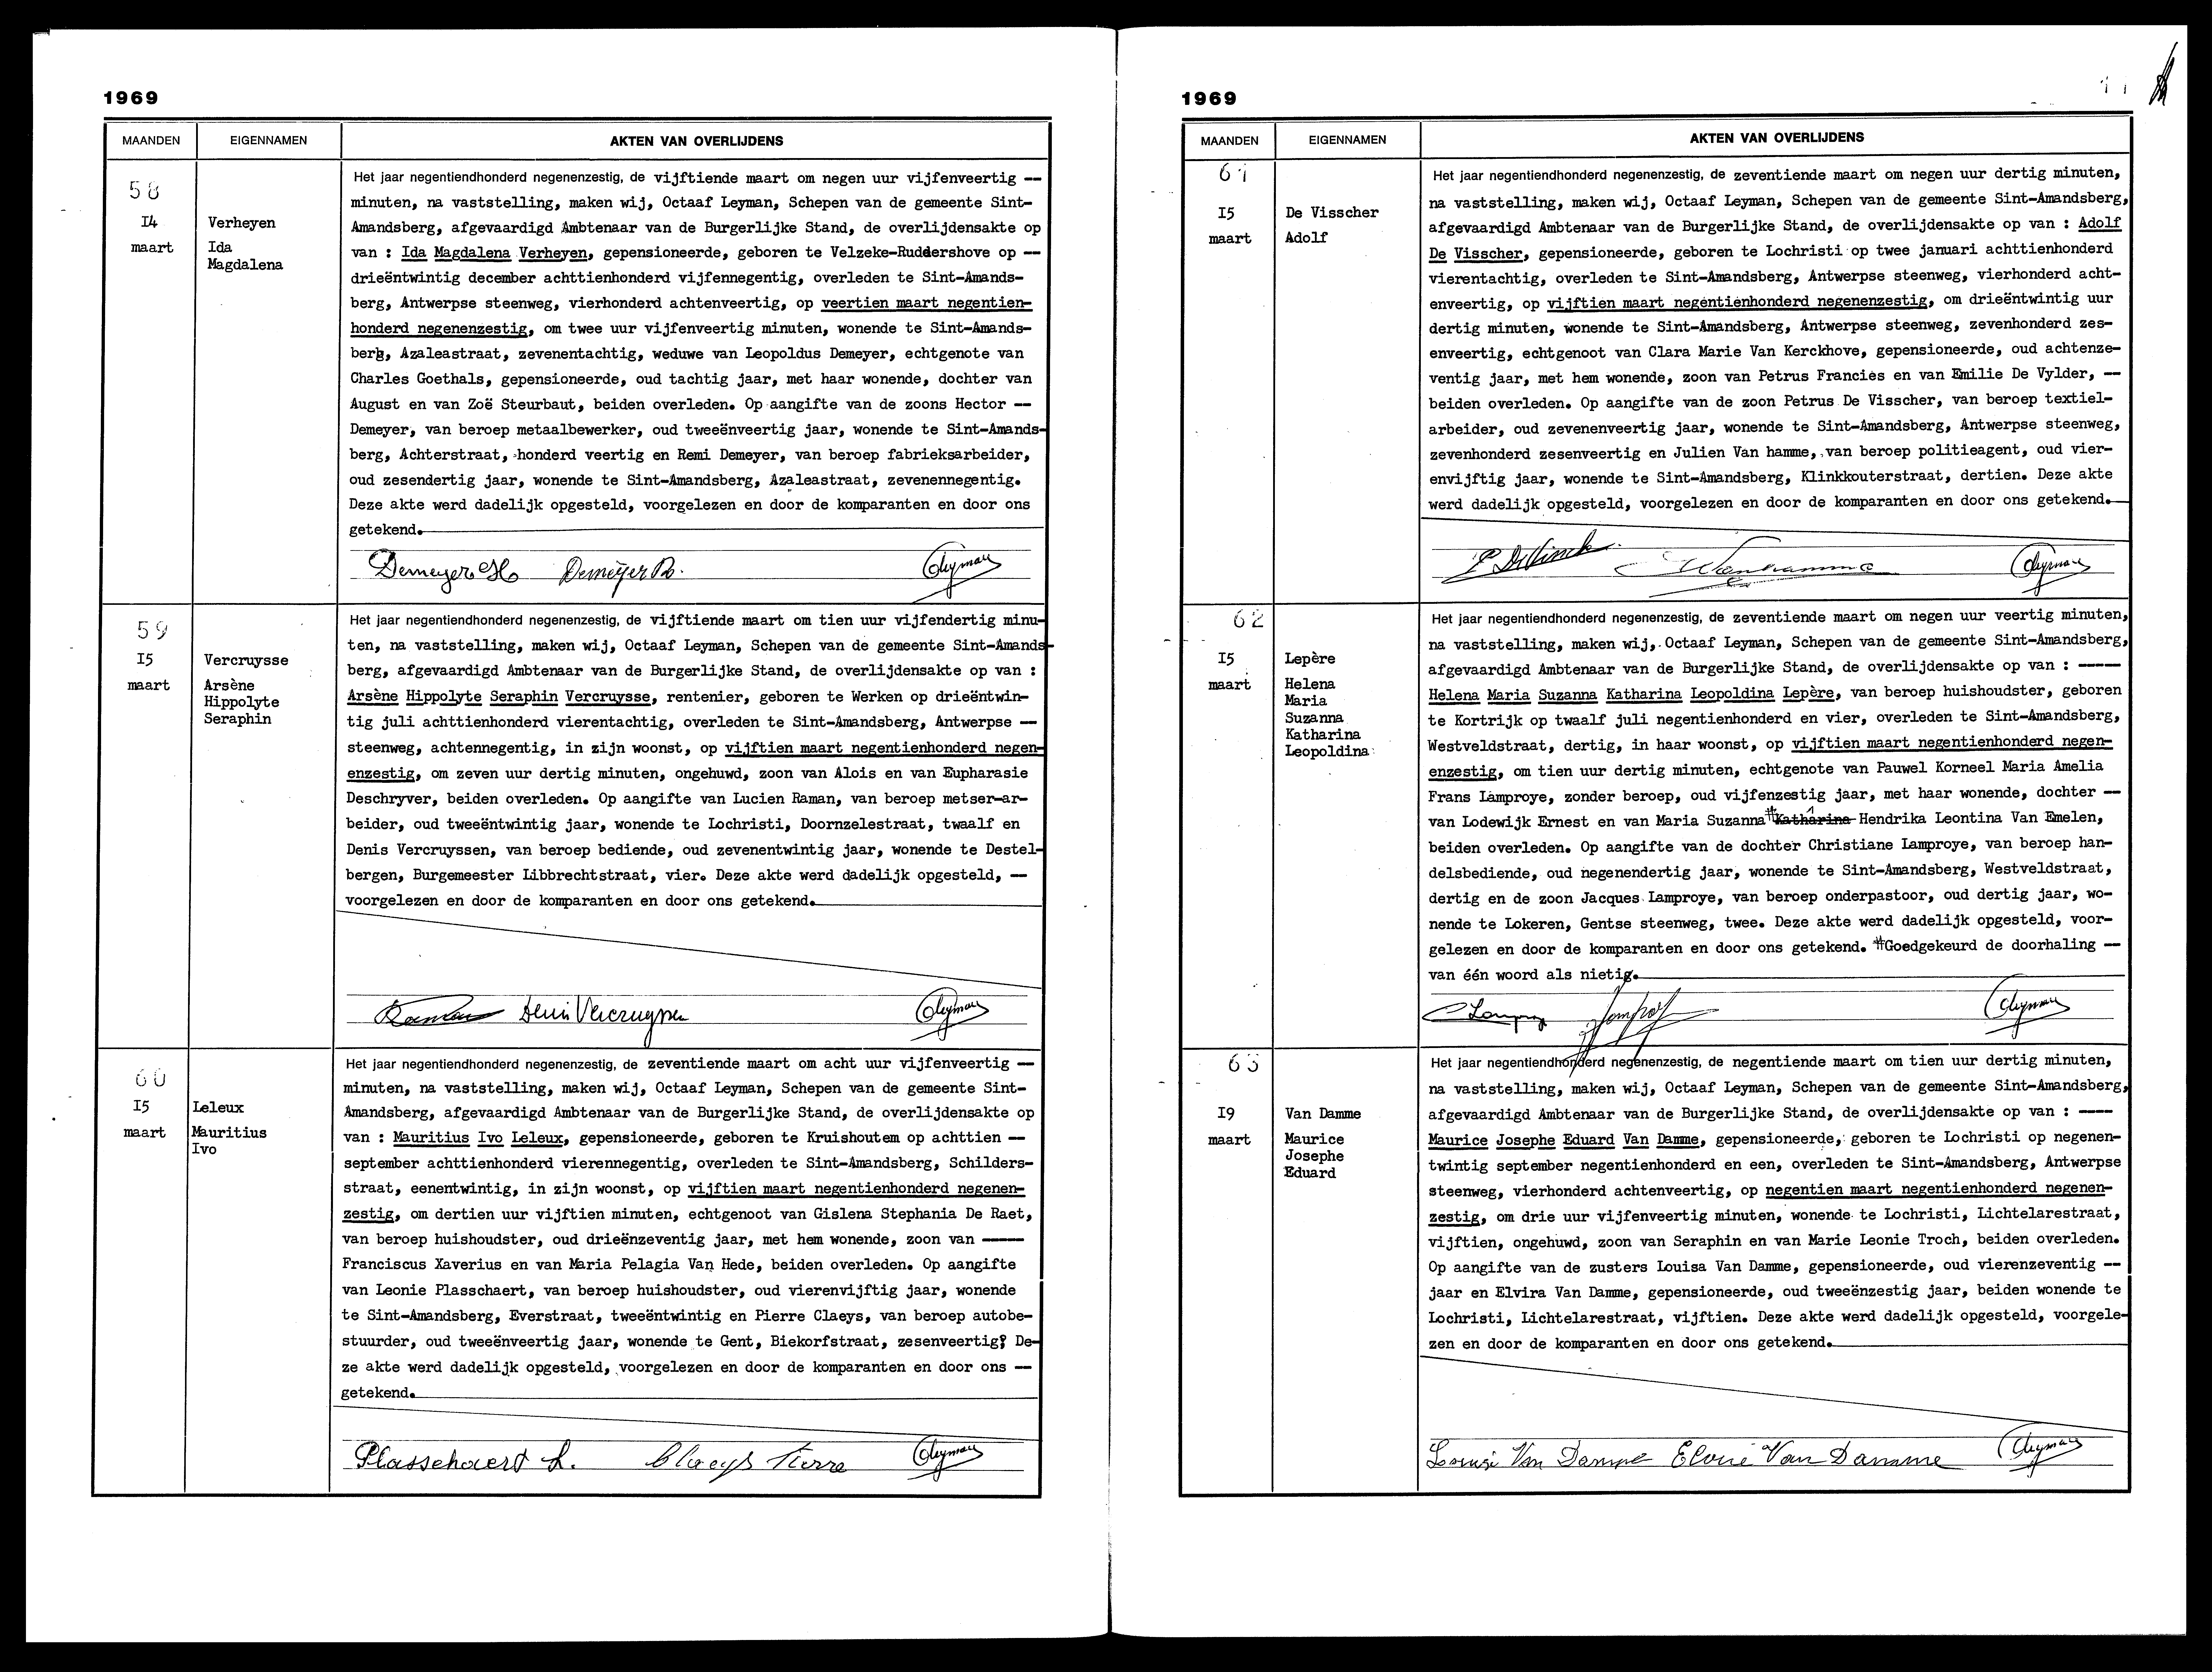 1969
MAANDEN
EIGENNAMEN
AKTEN VAN OVERLIJDENS
58
I4
maart
Verheyen
Ida
Magdalena
Het jaar negentiendhonderd negenenzestig, de vijftiende maart om negen uur vijfenveertig --
minuten, na vaststelling, maken wij, Octaaf Leyman, Schepen van de gemeente Sint-
Amandsberg, afgevaardigd Ambtenaar van de Burgerlijke Stand, de overlijdensakte op
van : Ida Magdalena Verheyen, gepensioneerde, geboren te Velzeke-Ruddershove op --
drieëntwintig december achttienhonderd vijfennegentig, overleden te Sint-Amands-
berg, Antwerpse steenweg, vierhonderd achtenveertig, op veertien maart negentien-
honderd negenenzestig, om twee uur vijfenveertig minuten, wonende te Sint-Amands-
berg, Azaleastraat, zevenentachtig, weduwe van Leopoldus Demeyer, echtgenote van
Charles Goethals, gepensioneerde, oud tachtig jaar, met haar wonende, dochter van
August en van Zoë Steurbaut, beiden overleden. Op aangifte van de zoons Hector --
Demeyer, van beroep metaalbewerker, oud tweeënveertig jaar, wonende te Sint-Amands-
berg, Achterstraat, honderd veertig en Remi Demeyer, van beroep fabrieksarbeider,
oud zesendertig jaar, wonende te Sint-Amandsberg, Azaleastraat, zevenennegentig.
Deze akte werd dadelijk opgesteld, voorgelezen en door de komparanten en door ons
getekend.
Demeyer H Demeyer R. OLeyman
59
I5
maart
Vercruysse
Arsène
Hippolyte
Seraphin
Het jaar negentiendhonderd negenenzestig, de vijftiende maart om tien uur vijfendertig minu-
ten, na vaststelling, maken wij, Octaaf Leyman, Schepen van de gemeente Sint-Amands-
berg, afgevaardigd Ambtenaar van de Burgerlijke Stand, de overlijdensakte op van :
Arsène Hippolyte Seraphin Vercruysse, rentenier, geboren te Werken op drieëntwin-
tig juli achttienhonderd vierentachtig, overleden te Sint-Amandsberg, Antwerpse --
steenweg, achtennegentig, in zijn woonst, op vijftien maart negentienhonderd negen-
enzestig, om zeven uur dertig minuten, ongehuwd, zoon van Alois en van Eupharasie
Deschryver, beiden overleden. Op aangifte van Lucien Raman, van beroep metser-ar-
beider, oud tweeëntwintig jaar, wonende te Lochristi, Doornzelestraat, twaalf en
Denis Vercruyssen, van beroep bediende, oud zevenentwintig jaar, wonende te Destel-
bergen, Burgemeester Libbrechtstraat, vier. Deze akte werd dadelijk opgesteld, --
voorgelezen en door de komparanten en door ons getekend.
Raman Denis Vercruyssen OLeyman
60
I5
maart
Leleux
Mauritius
Ivo
Het jaar negentiendhonderd negenenzestig, de zeventiende maart om acht uur vijfenveertig --
minuten, na vaststelling, maken wij, Octaaf Leyman, Schepen van de gemeente Sint-
Amandsberg, afgevaardigd Ambtenaar van de Burgerlijke Stand, de overlijdensakte op
van : Mauritius Ivo Leleux, gepensioneerde, geboren te Kruishoutem op achttien --
september achttienhonderd vierennegentig, overleden te Sint-Amandsberg, Schilders-
straat, eenentwintig, in zijn woonst, op vijftien maart negentienhonderd negenen-
zestig, om dertien uur vijftien minuten, echtgenoot van Gislena Stephania De Raet,
van beroep huishoudster, oud drieënzeventig jaar, met hem wonende, zoon van ----
Franciscus Xaverius en van Maria Pelagia Van Hede, beiden overleden. Op aangifte
van Leonie Plasschaert, van beroep huishoudster, oud vierenvijftig jaar, wonende
te Sint-Amandsberg, Everstraat, tweeëntwintig en Pierre Claeys, van beroep autobe-
stuurder, oud tweeënveertig jaar, wonende te Gent, Biekorfstraat, zesenveertig. De-
ze akte werd dadelijk opgesteld, voorgelezen en door de komparanten en door ons --
getekend.
Plasschaert L. Claeys Pierre OLeyman
1969
MAANDEN
EIGENNAMEN
AKTEN VAN OVERLIJDENS
61
I5
maart
De Visscher
Adolf
Het jaar negentiendhonderd negenenzestig, de zeventiende maart om negen uur dertig minuten,
na vaststelling, maken wij, Octaaf Leyman, Schepen van de gemeente Sint-Amandsberg,
afgevaardigd Ambtenaar van de Burgerlijke Stand, de overlijdensakte op van : Adolf
De Visscher, gepensioneerde, geboren te Lochristi op twee januari achttienhonderd
vierentachtig, overleden te Sint-Amandsberg, Antwerpse steenweg, vierhonderd acht-
enveertig, op vijftien maart negentienhonderd negenenzestig, om drieëntwintig uur
dertig minuten, wonende te Sint-Amandsberg, Antwerpse steenweg, zevenhonderd zes-
enveertig, echtgenoot van Clara Marie Van Kerckhove, gepensioneerde, oud achtenze-
ventig jaar, met hem wonende, zoon van Petrus Francies en van Emilie De Vylder, --
beiden overleden. Op aangifte van de zoon Petrus De Visscher, van beroep textiel-
arbeider, oud zevenenveertig jaar, wonende te Sint-Amandsberg, Antwerpse steenweg,
zevenhonderd zesenveertig en Julien Van hamme, van beroep politieagent, oud vier-
envijftig jaar, wonende te Sint-Amandsberg, Klinkkouterstraat, dertien. Deze akte
werd dadelijk opgesteld, voorgelezen en door de komparanten en door ons getekend.
Vanhamme OLeyman
62
I5
maart
Lepère
Helena
Maria
Suzanna
Katharina
Leopoldina
Het jaar negentiendhonderd negenenzestig, de zeventiende maart om negen uur veertig minuten,
na vaststelling, maken wij, Octaaf Leyman, Schepen van de gemeente Sint-Amandsberg,
afgevaardigd Ambtenaar van de Burgerlijke Stand, de overlijdensakte op van : ----
Helena Maria Suzanna Katharina Leopoldina Lepère, van beroep huishoudster, geboren
te Kortrijk op twaalf juli negentienhonderd en vier, overleden te Sint-Amandsberg,
Westveldstraat, dertig, in haar woonst, op vijftien maart negentienhonderd negen-
enzestig, om tien uur dertig minuten, echtgenote van Pauwel Korneel Maria Amelia
Frans Lamproye, zonder beroep, oud vijfenzestig jaar, met haar wonende, dochter --
van Lodewijk Ernest en van Maria Suzanna #Katharina Hendrika Leontina Van Emelen,
beiden overleden. Op aangifte van de dochter Christiane Lamproye, van beroep han-
delsbediende, oud negenendertig jaar, wonende te Sint-Amandsberg, Westveldstraat,
dertig en de zoon Jacques Lamproye, van beroep onderpastoor, oud dertig jaar, wo-
nende te Lokeren, Gentse steenweg, twee. Deze akte werd dadelijk opgesteld, voor-
gelezen en door de komparanten en door ons getekend. #Goedgekeurd de doorhaling --
van één woord als nietig.
OLeyman
63
I9
maart
Van Damme
Maurice
Josephe
Eduard
Het jaar negentiendhonderd negenenzestig, de negentiende maart om tien uur dertig minuten,
na vaststelling, maken wij, Octaaf Leyman, Schepen van de gemeente Sint-Amandsberg,
afgevaardigd Ambtenaar van de Burgerlijke Stand, de overlijdensakte op van : ----
Maurice Josephe Eduard Van Damme, gepensioneerde, geboren te Lochristi op negenen-
twintig september negentienhonderd en een, overleden te Sint-Amandsberg, Antwerpse
steenweg, vierhonderd achtenveertig, op negentien maart negentienhonderd negenen-
zestig, om drie uur vijfenveertig minuten, wonende te Lochristi, Lichtelarestraat,
vijftien, ongehuwd, zoon van Seraphin en van Marie Leonie Troch, beiden overleden.
Op aangifte van de zusters Louisa Van Damme, gepensioneerde, oud vierenzeventig --
jaar en Elvira Van Damme, gepensioneerde, oud tweeënzestig jaar, beiden wonende te
Lochristi, Lichtelarestraat, vijftien. Deze akte werd dadelijk opgesteld, voorgele-
zen en door de komparanten en door ons getekend.
Van Damme Van Damme OLeyman